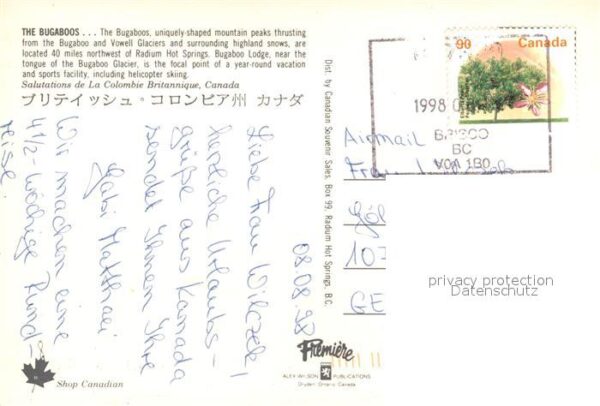 THE BUGABOOS . . . The Bugaboos, uniquely-shaped mountain peaks thrusting
from the Bugaboo and Vowell Glaciers and surrounding highland snows, are
located 40 miles northwest of Radium Hot Springs. Bugaboo Lodge, near the
tongue of the Bugaboo Glacier, is the focal point of a year-round vacation
and sports facility, including helicopter skiing.
Salutations de La Colombie Britannique, Canada
ブリティッシュ・コロンビア州 カナダ
08.08.98
Liebe Frau Wilczek!
herzliche Urlaubs-
grüße aus Kanada
sendet Ihnen Ihre
Gabi Matthaei
Wir machen eine
4 1/2-wöchige Rund-
reise
Dist. by Canadian Souvenir Sales, Box 99, Radium Hot Springs, B.C.
90 Canada
1998
BRISCO
BC
V0A 1B0
Airmail
Frau
GE
privacy protection
Datenschutz
Première
ALEX WILSON PUBLICATIONS
Dryden Ontario Canada
Shop Canadian